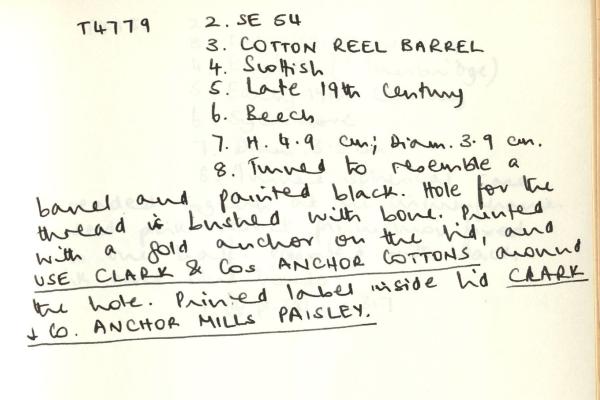 T4779 2. SE 54
3. COTTON REEL BARREL
4. Scottish
5. Late 19th Century
6. Beech
7. H. 4.9 cm; Diam. 3.9 cm.
8. Turned to resemble a
barrel and painted black. Hole for the
thread is bushed with bone. Printed
with a gold anchor on the lid, and
USE CLARK & Cos ANCHOR COTTONS around
the hole. Printed label inside lid CLARK
& Co. ANCHOR MILLS PAISLEY.